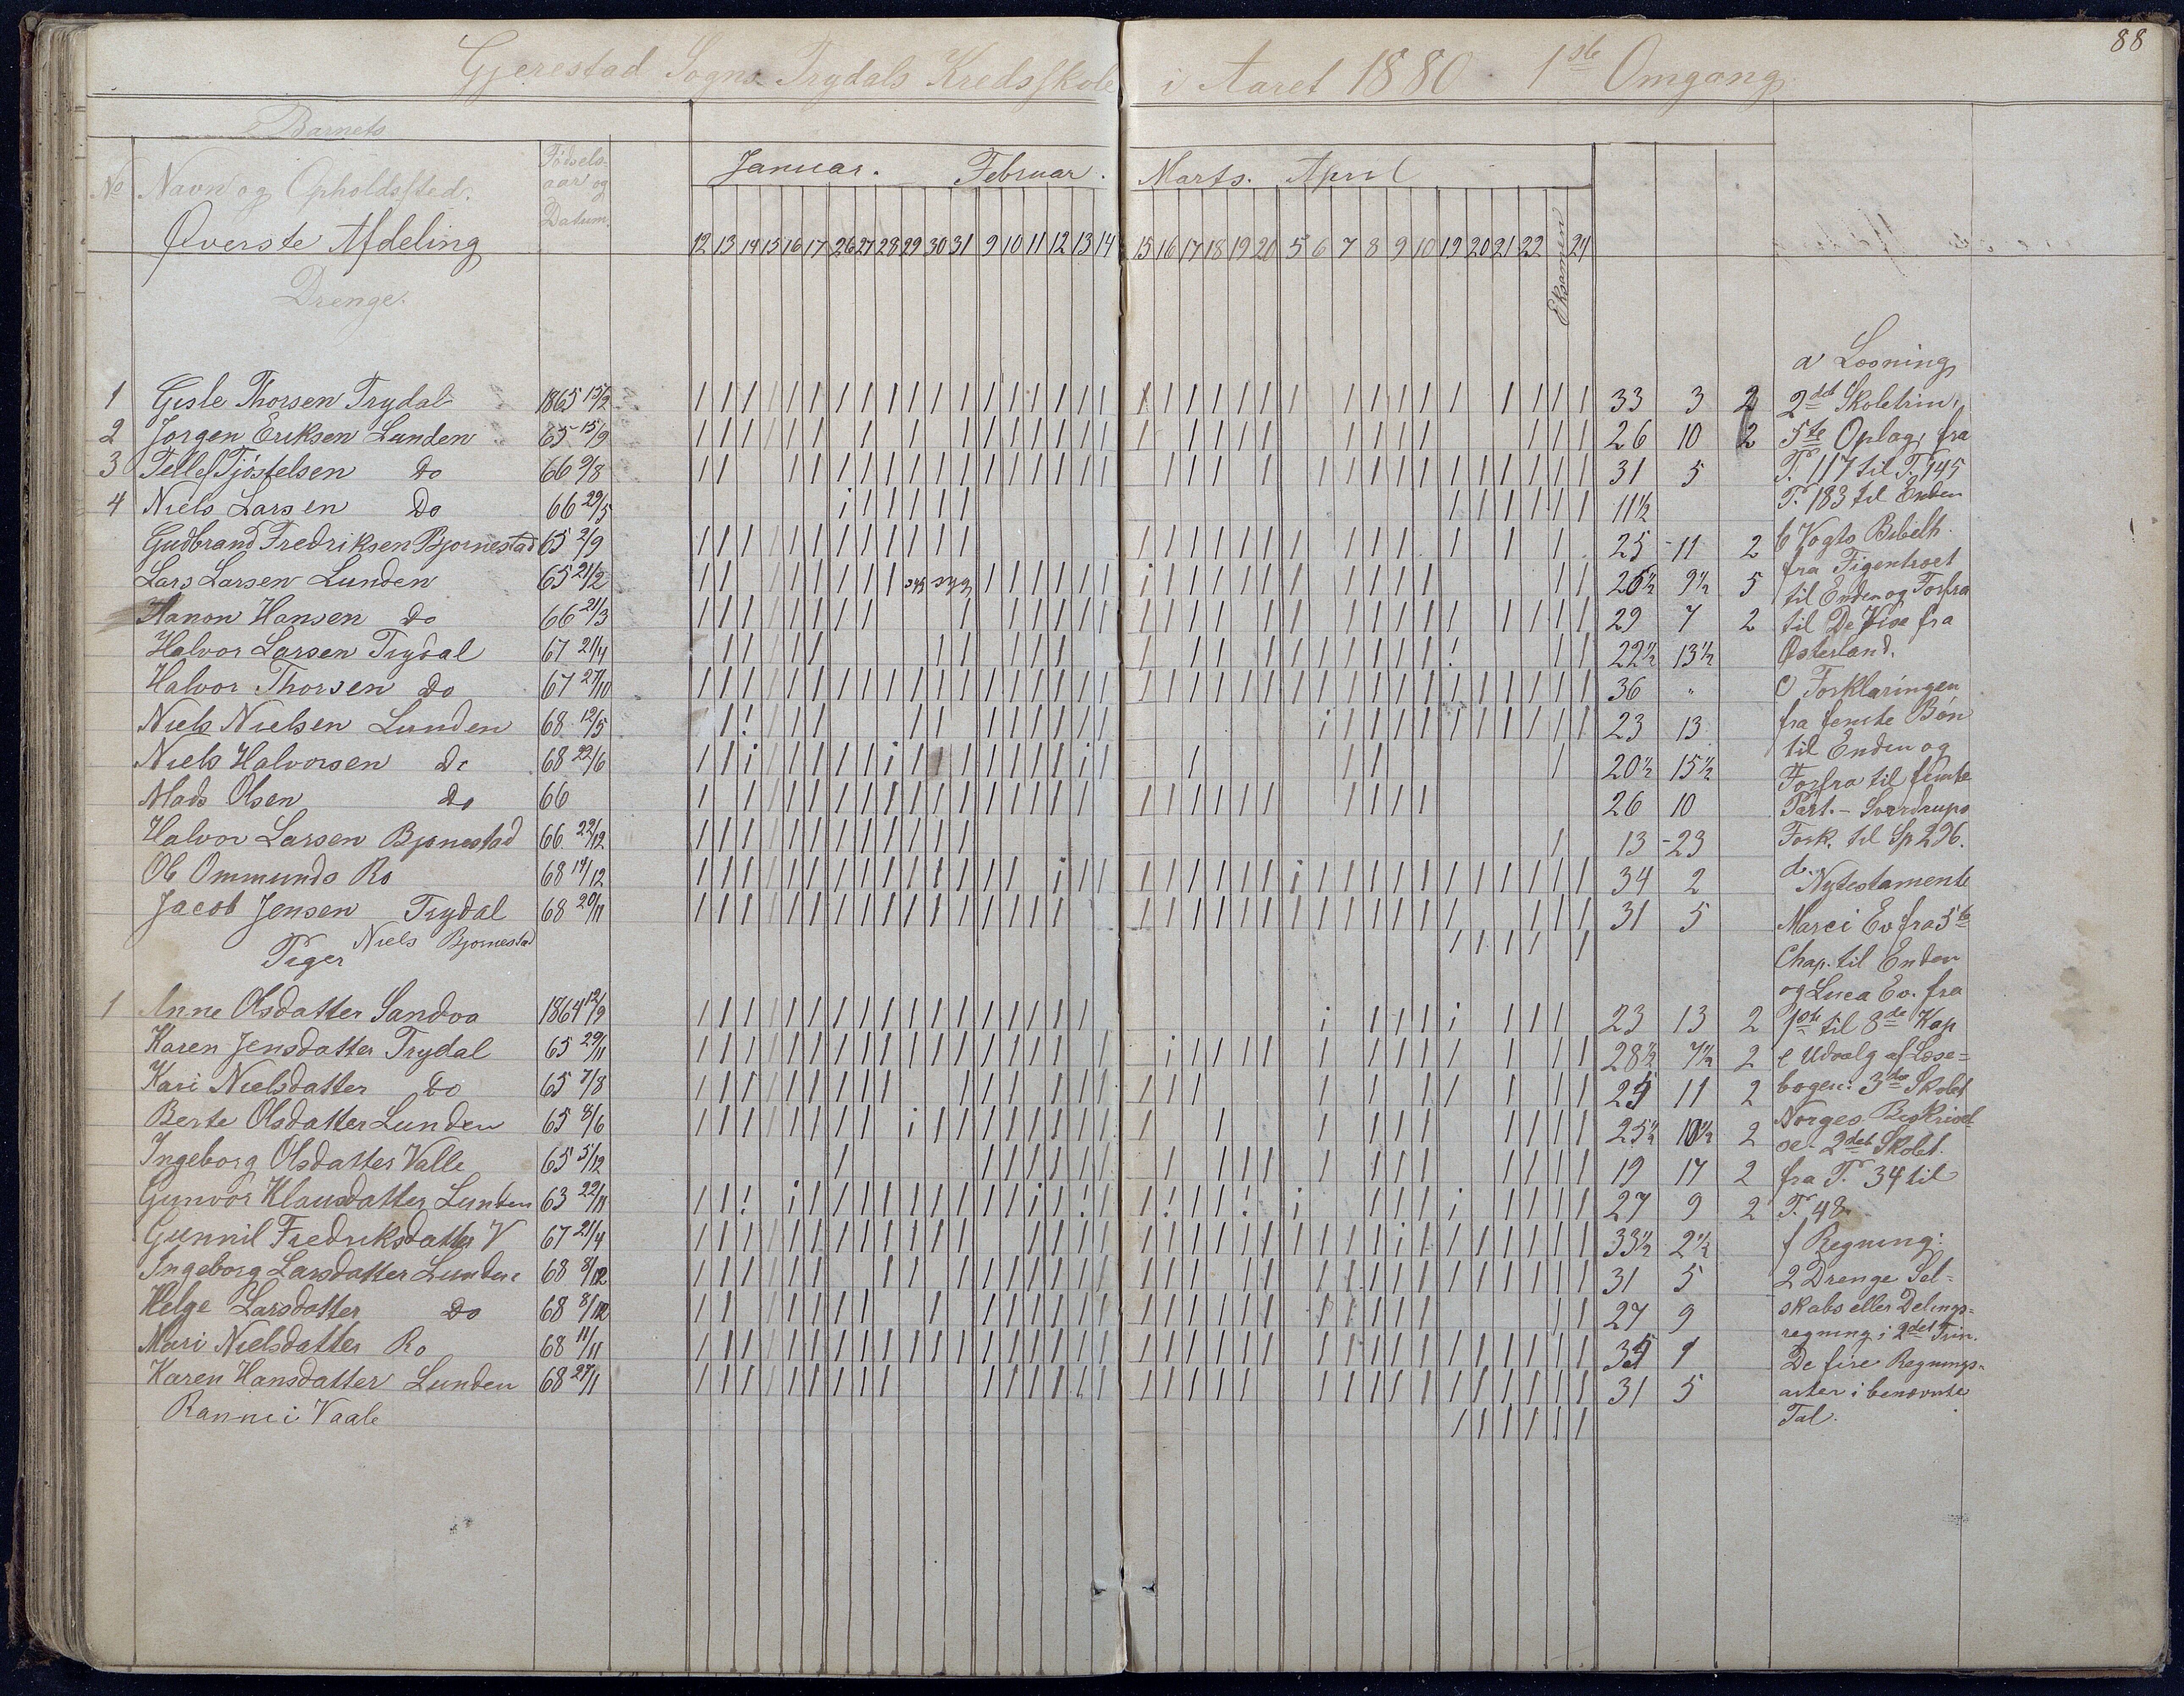 88
Gjerestad Sogns Trydals Kredsskole i Aaret 1880. 1ste Omgang
Barnets
No Navn og Opholdssted. Fødsels-aar og Datum.
Januar. Februar. Marts. April
Øverste Afdeling 12 13 14 15 16 17 26 27 28 29 30 31 9 10 11 12 13 14 15 16 17 18 19 20 5 6 7 8 9 10 19 20 21 22 Eksamen 24
Drenge.
1 Gisle Thorsen Trydal 1865 15/2 33 3 2
2 Jorgen Eriksen Lunden 65 15/9 26 10 2
3 Tellef Tjöstelsen do 66 9/8 31 5
4 Niels Larsen do 66 29/5 11½
Gudbrand Fredriksen Bjornestad 65 2/9 25 - 11 2
Lars Larsen Lunden 65 21/2 syg syg 26½ 9½ 5
Hanon Hansen do 66 21/3 29 7 2
Halvor Larsen Trydal 67 21/4 22½ 13½
Halvor Thorsen do 67 27/10 36 "
Niels Nielsen Lunden 68 12/5 23 13
Niels Halvorsen do 68 22/6 20½ 15½
Mads Olsen do 66 26 10
Halvor Larsen Bjornestad 66 22/12 13 - 23
Ole Ommunds Ro 68 14/12 34 2
Jacob Jensen Trydal 68 20/11 31 5
Niels Bjornestad
Piger
1 Anne Olsdatter Sandoa 1864 12/9 23 13 2
Karen Jensdatter Trydal 65 29/11 28½ 7½ 2
Kari Nielsdatter do 65 7/8 25 11 2
Berte Olsdatter Lunden 65 8/6 25½ 10½ 2
Ingeborg Olsdatter Valle 65 5/12 19 17 2
Gunvor Klausdatter Lunden 63 22/11 27 9 2
Gunnil Fredriksdatter V 67 21/4 33½ 2½
Ingeborg Larsdatter Lunden 68 8/12 31 5
Helge Larsdatter do 68 8/12 27 9
Mari Nielsdatter Ro 68 11/11 35 1
Karen Hansdatter Lunden 68 27/1 31 5
Ranne i Vaale
a Læsning
2det Skoletrin,
5te Oplag, fra
P. 117 til P. 145
P. 183 til Enden
b Vogts Bibelh.
fra Figentræet
til Enden og Forfra
til De Vise fra
Østerland.
c Forklaringen
fra femte Bön
til Enden og
Forfra til femte
Part. - Sverdrups
Fork. til Sp 296.
d. Nytestamente
Marci Ev fra 5te
Chap. til Enden
og Luca Ev. fra
1ste til 8de Kap
e Udvalg af Læse=
bogen: 3die Skolet
Norges Beskrivel
se 2det Skolet.
fra P. 34 til
P. 48.
f Regning:
2 Drenge Sel=
skabs eller Delings=
regning i 2det Trin.
De fire Regnings=
arter i benævnte
Tal.